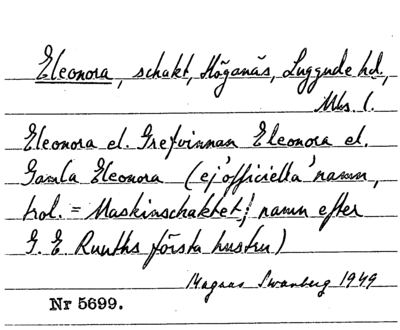 Eleonora, schakt, Höganäs, Luggude hd.,
Mhs. l.
Eleonora el. Grefvinnan Eleonora el.
Gamla Eleonora (ej 'officiella' namn,
trol. = Maskinschaktet; namn efter
G. E. Ruuths första hustru)
Magnus Swanberg 1949
Nr 5699.